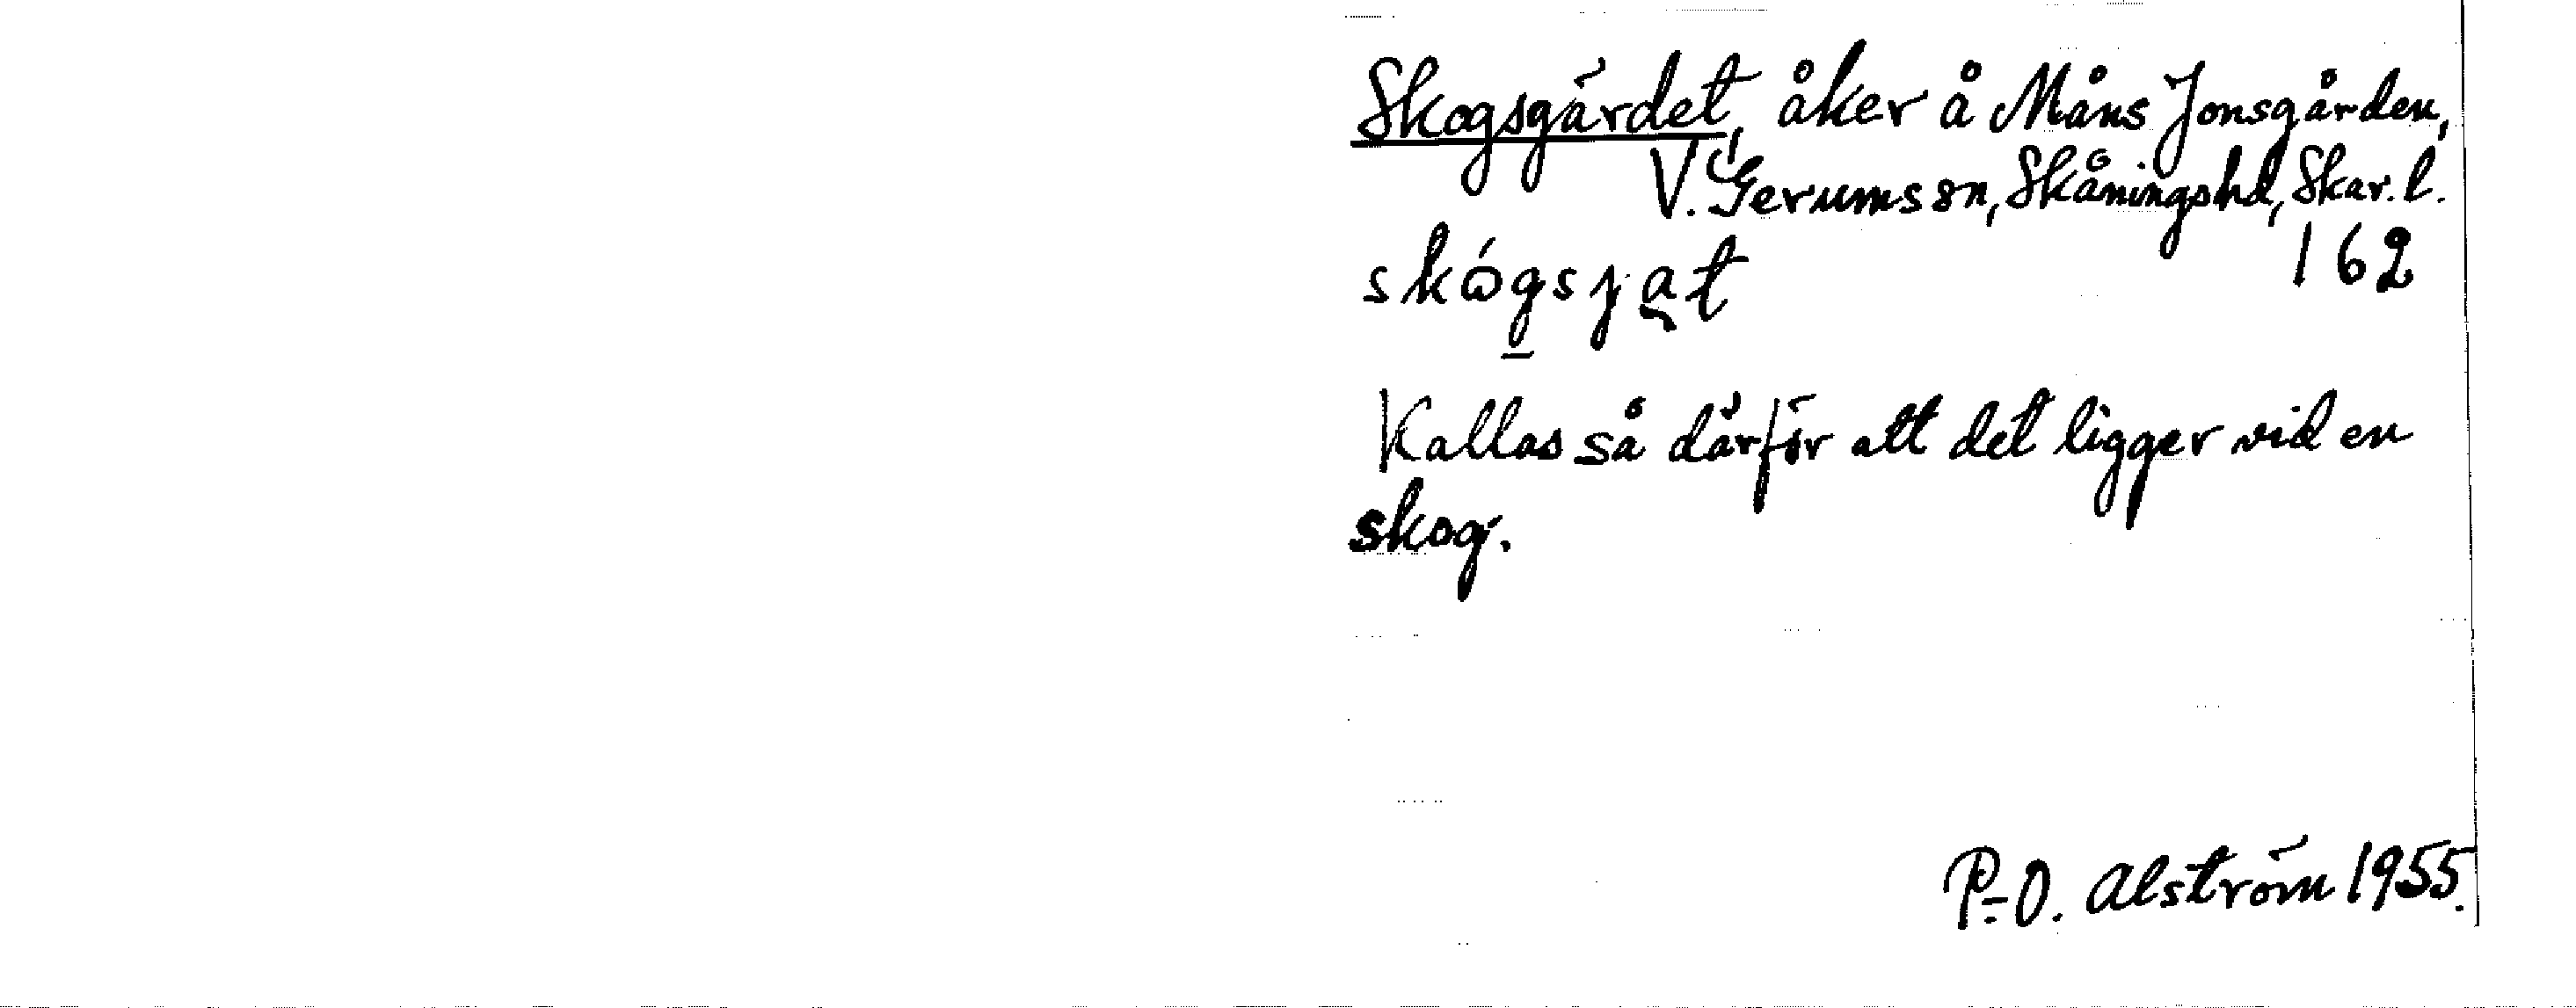 Skogsgärdet, åker å Måns Jonsgården,
V. Gerums sn, Skånings hd, Skar. l.
skógsjat 162
Kallas så därför att det ligger vid en
skog.
P.-O. Alström 1955.